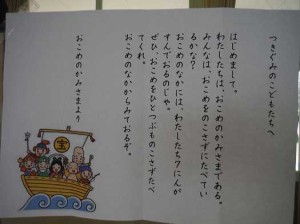 つきぐみのこどもたちへ
はじめまして。
わたしたちは、おこめのかみさまである。
みんなは、おこめをのこさずにたべてい
るかな?
おこめのなかには、わたしたち7にんが
すんでおるのじゃ。
ぜひ、おこめをひとつぶものこさずたべ
てくれ。
おこめのなかからみておるぞ。
おこめのかみさまより
宝